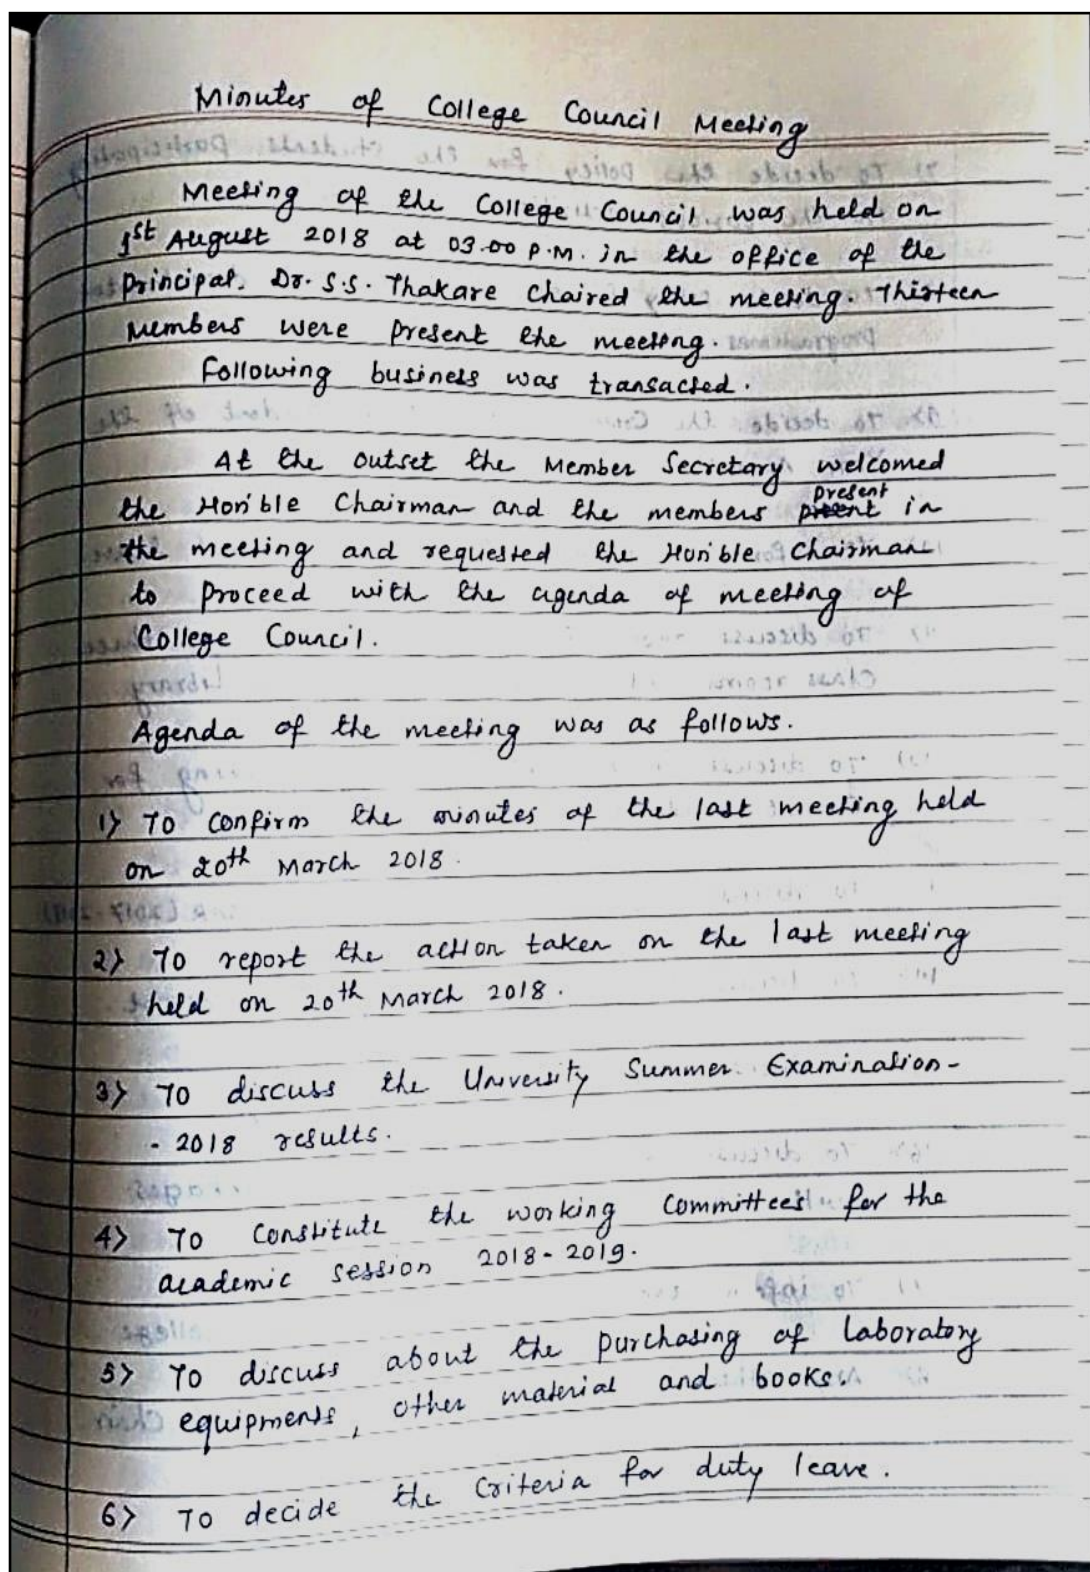 Minutes of College Council Meeting
Meeting of the College Council was held on
1st August 2018 at 03.00 p.m. in the office of the
Principal. Dr. S.S. Thakare chaired the meeting. Thirteen
members were present the meeting.
Following business was transacted.
At the outset the Member Secretary welcomed
the Hon'ble Chairman and the members present in
the meeting and requested the Hon'ble Chairman
to proceed with the agenda of meeting of
College Council.
Agenda of the meeting was as follows.
1) To confirm the minutes of the last meeting held
on 20th March 2018.
2) To report the action taken on the last meeting
held on 20th March 2018.
3) To discuss the University Summer Examination-
- 2018 results.
4) To constitute the working committees for the
academic session 2018-2019.
5) To discuss about the purchasing of laboratory
equipments, other material and books.
6) To decide the criteria for duty leave.